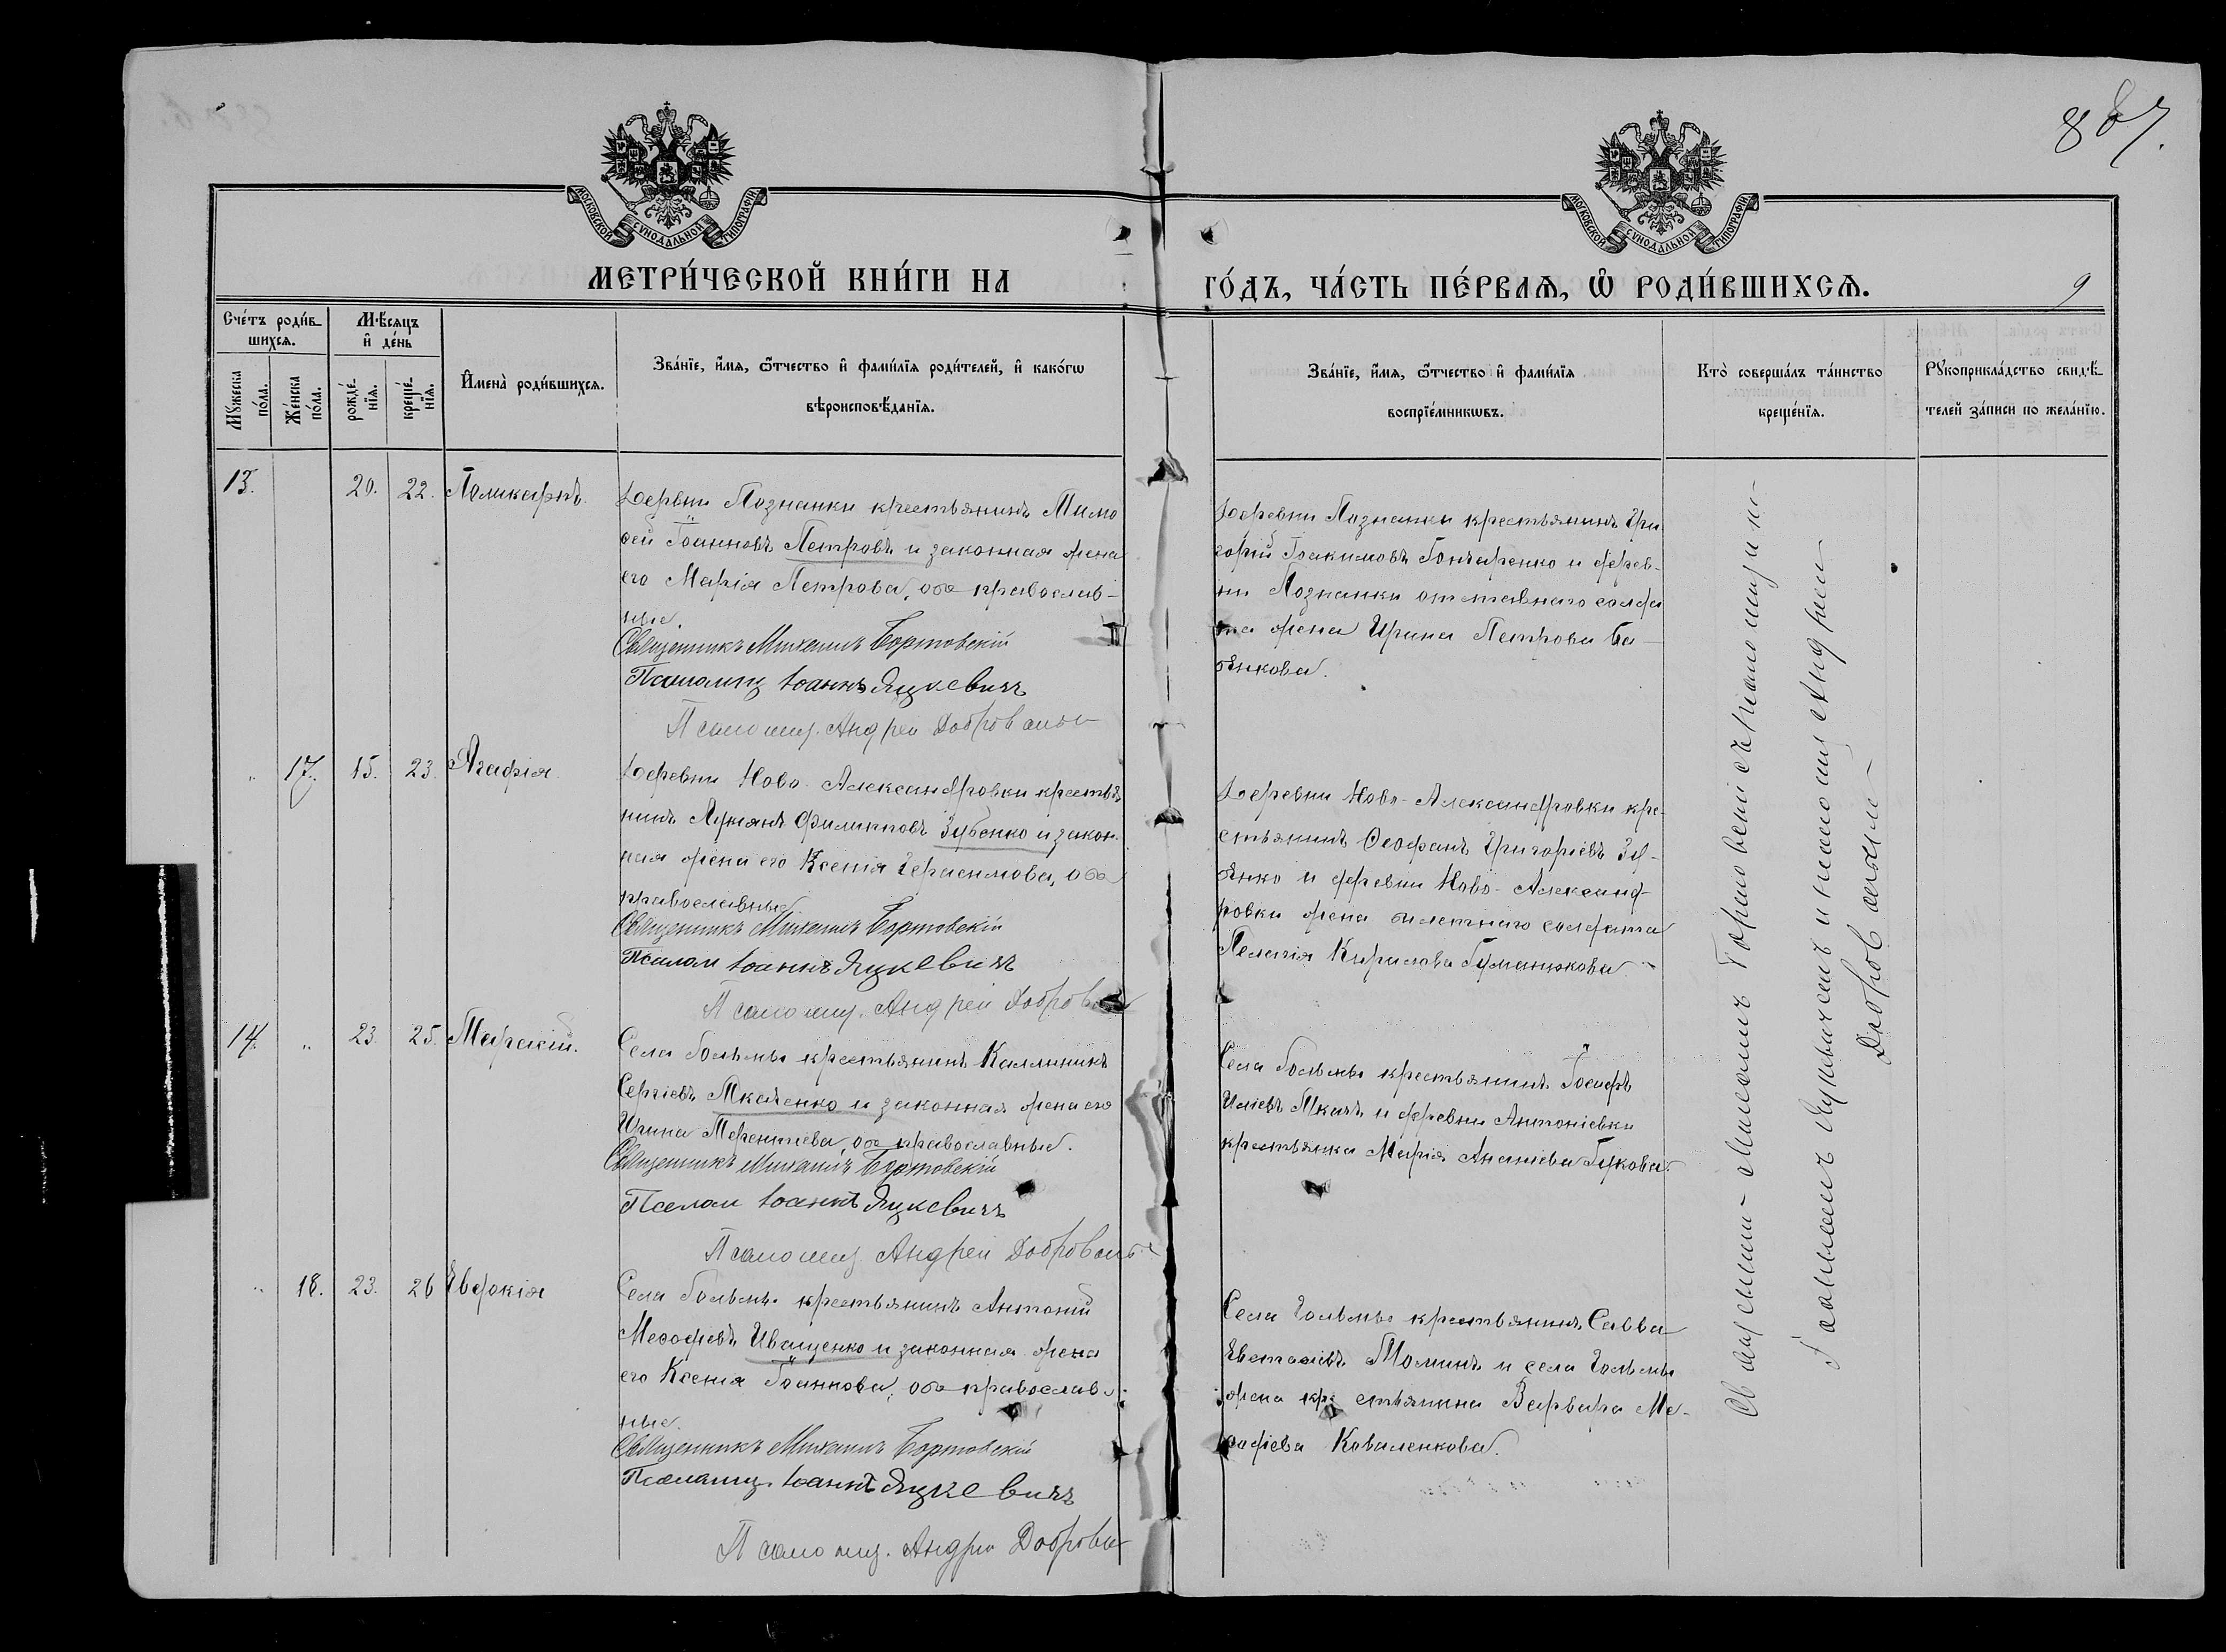 887.
МОСКОВСКОЙ СѴНОДАЛЬНОЙ ТИПОГРАФІИ
МОСКОВСКОЙ СѴНОДАЛЬНОЙ ТИПОГРАФІИ
МЕТРИ́ЧЕСКОЙ КНИ́ГИ НА
ГО́ДЪ, ЧА́СТЬ ПЕ́РВАѦ, Ѽ РОДИ́ВШИХСѦ.
9
Сче́тъ роди́в-
шихсѧ.
Мꙋ́жеска
по́ла.
Же́нска
по́ла.
Мѣ́сѧцъ
и҆ де́нь
рожде́-
нїѧ.
креще́-
нїѧ.
И҆мена̀ роди́вшихсѧ.
Зва́нїе, и҆́мѧ, ѻ҆́тчество и҆ фами́лїѧ роди́телей, и҆ како́гѡ
вѣроисповѣ́данїѧ.
Зва́нїе, и҆́мѧ, ѻ҆́тчество и҆ фами́лїѧ
воспрїе́мникѡвъ.
Кто̀ соверша́лъ та́инство
креще́нїѧ.
Рꙋкоприкла́дство свидѣ́-
телей за́писи по жела́нїю.
13.
20.
22.
Поликарпъ.
Деревни Познанки крестьянинъ Тимо
ѳей Іоанновъ Петровъ и законная жена
его Марія Петрова, оба православ-
ные.
Священникъ Михаилъ Бортовскій
Псаломщ Іоаннъ Яцкевичъ
Псаломщ. Андрей
Деревни Познанки крестьянинъ Гри
горій Іоакимовъ Гончаренко и дерев-
ни Познанки отставного солда
та жена Ирина Петрова
17.
15.
23.
Агафія
Деревни Ново-Александровки крестья
нинъ Лукіанъ Филипповъ Зубенко и закон
ная жена его Ксенія Герасимова, оба
православные
Священникъ Михаилъ Бортовскій
Псалом Іоаннъ Яцкевичъ
Псаломщ. Андрей
Деревни Ново-Александровки кре-
стьянинъ Ѳеофанъ Григоріевъ Зу-
бенко и деревни Ново-Александ
ровки жена билетнаго солдата
Пелагія Кирилова
14.
23.
25.
Тарасій.
Села Гольмы крестьянинъ Каллиникъ
Сергіевъ Ткаченко и законная жена его
Ирина Терентіева, оба православные.
Священникъ Михаилъ Бортовскій
Псалом Іоаннъ Яцкевичъ
Псаломщ. Андрей
Села Гольмы крестьянинъ Іосифъ
Иліевъ Ткачъ и деревни Антоніевки
крестьянка Марія Ананіева Гукова.
18.
23.
26
Евдокія
Села Гольмы крестьянинъ Антоній
Меѳодіевъ Иващенко и законная жена
его Ксенія Іоаннова, оба православ-
ные.
Священникъ Михаилъ Бортовскій
Псаломщ. Іоаннъ Яцкевичъ
Псаломщ. Андрей
Села Гольмы крестьянинъ Савва
Евстафіевъ Томинъ и села Гольмы
жена крестьянина Варвара Ме-
ѳодіева Коваленкова.